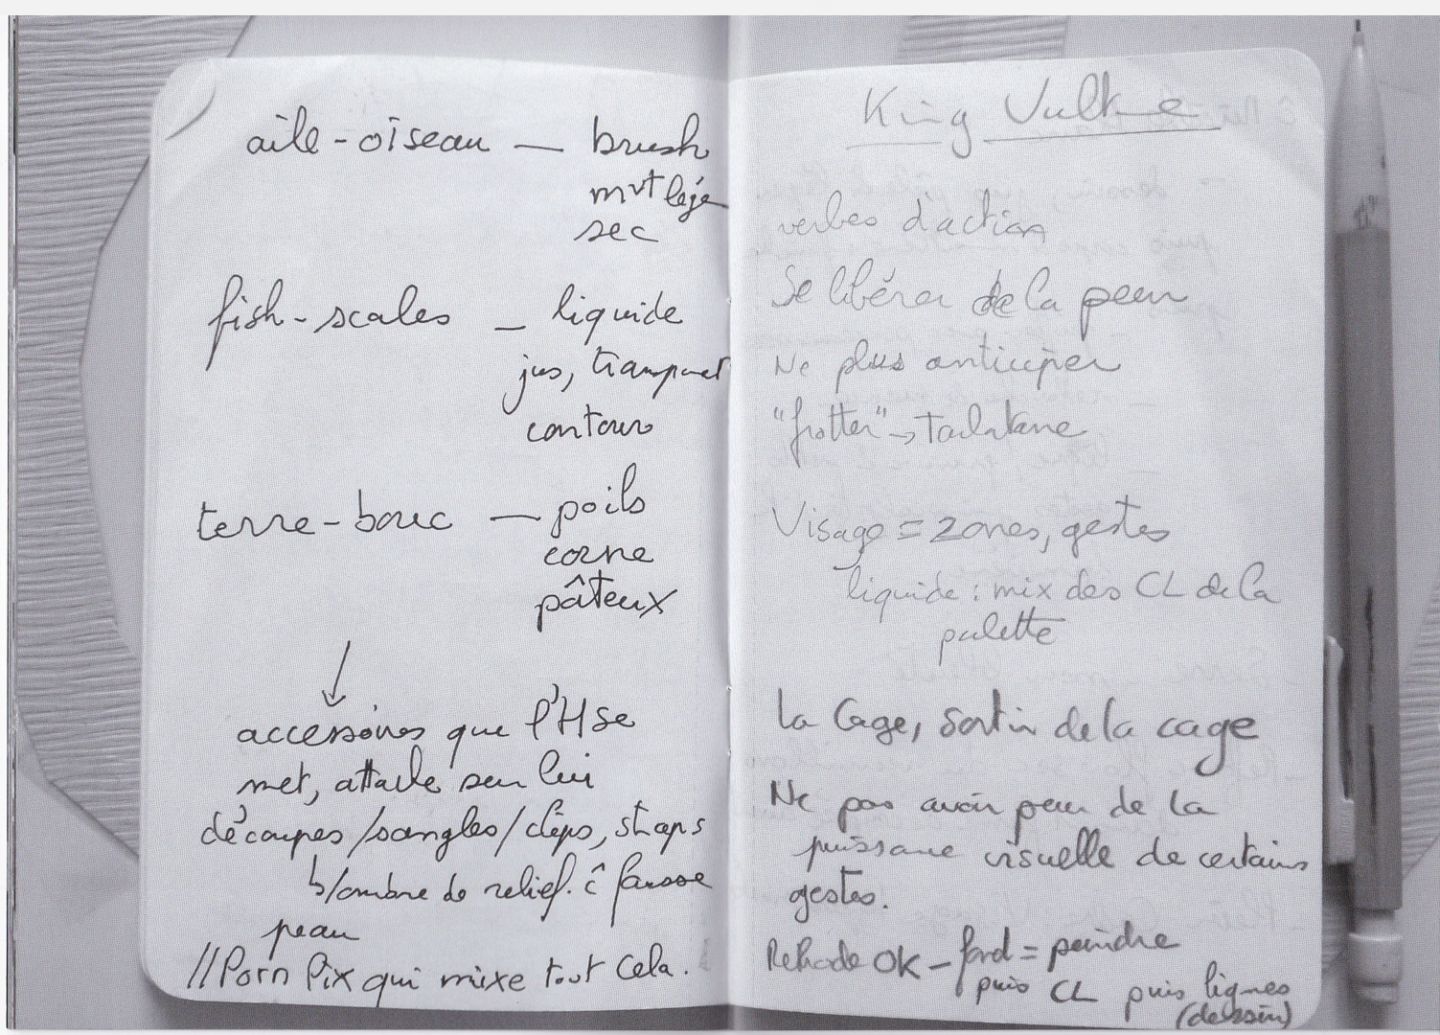 aile-oiseau — brush
mvt léger
sec
fish-scales — liquide
jus, transparent
contour
terre-bouc — poils
corne
pâteux
accessoires que l'H se
met, attache sur lui
découpes/sangles/clips, straps
↳/ombre de relief. ĉ fausse
peau
//Porn Pix qui mixe tout cela.
King Vulture
verbes d'action
Se libérer de la peur
Ne plus anticiper
"frotter" →
Visage = zones, gestes
liquide : mix des CL de la
palette
La Cage, sortir de la cage
Ne pas avoir peur de la
puissance visuelle de certains
gestes.
OK - fond = peindre
puis CL puis lignes
(dessin)